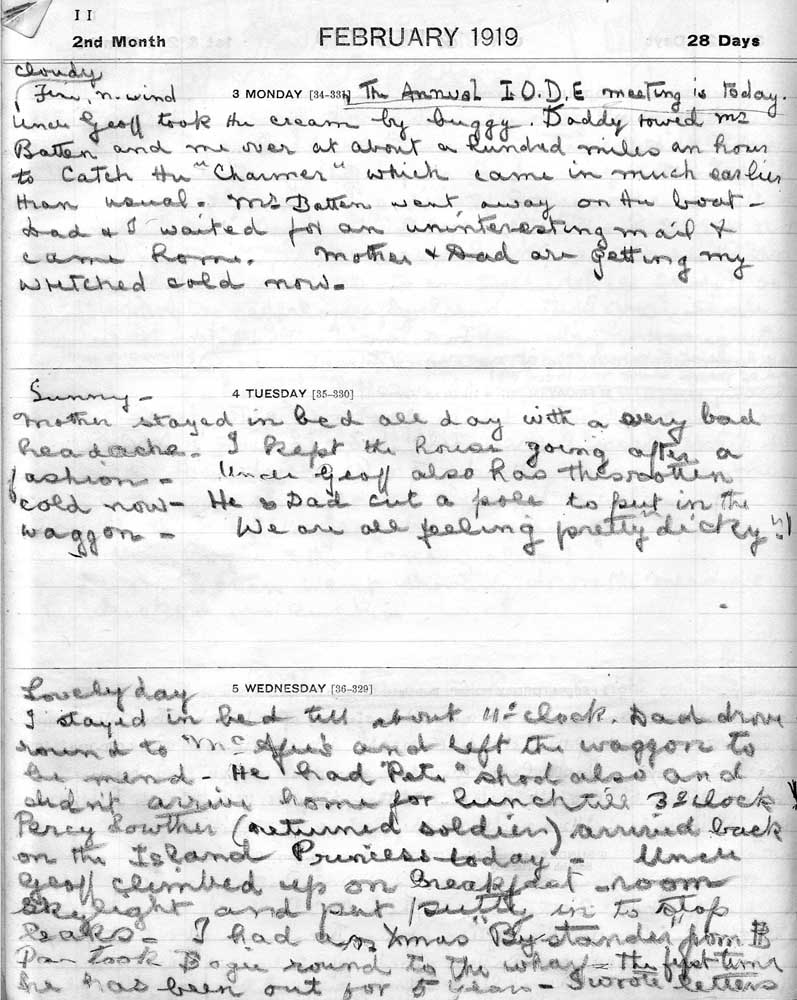 II
2nd Month FEBRUARY 1919 28 Days
Cloudy
Fine, n. wind 3 MONDAY [34-331] The Annual I.O.D.E meeting is today.
Uncle Geoff took the cream by buggy. Daddy rowed Mrs
Batten and me over at about a hundred miles an hour
to catch the "Charmer" which came in much earlier
than usual. Mrs Batten went away on the boat -
Dad & I waited for an uninteresting mail &
came home. Mother & Dad are getting my
wretched cold now.
Sunny - 4 TUESDAY [35-330]
Mother stayed in bed all day with a very bad
headache. I kept the house going after a
fashion - Uncle Geoff also has the rotten
cold now - He & Dad cut a pole to put in the
waggon - We are all feeling pretty "dicky"!!
Lovely day 5 WEDNESDAY [36-329]
I stayed in bed till about 11 o'clock. Dad drove
round to and left the waggon to
be mend - He had "Pete" shod also and
didn't arrive home for lunch till 3 o'clock
Percy Lowther (returned soldier) arrived back
on the Island Princess today - Uncle
Geoff climbed up on breakfast-room
skylight and put putty in to stop
leaks - I had Xmas "Bystander" from
Dad took round to the wharf - the first time
he has been out for 5 years - I wrote letters